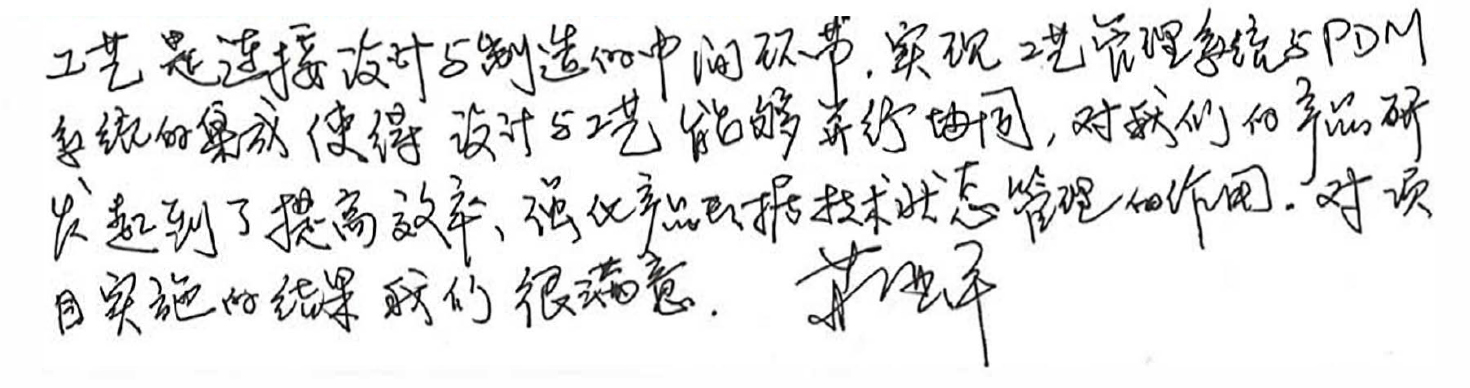 工艺是连接设计与制造的中间环节,实现工艺管理系统与PDM
系统的集成使得设计与工艺能够并行协同,对我们的产品研
发起到了提高效率、强化产品数据技术状态管理的作用.对项
目实施的结果我们很满意.